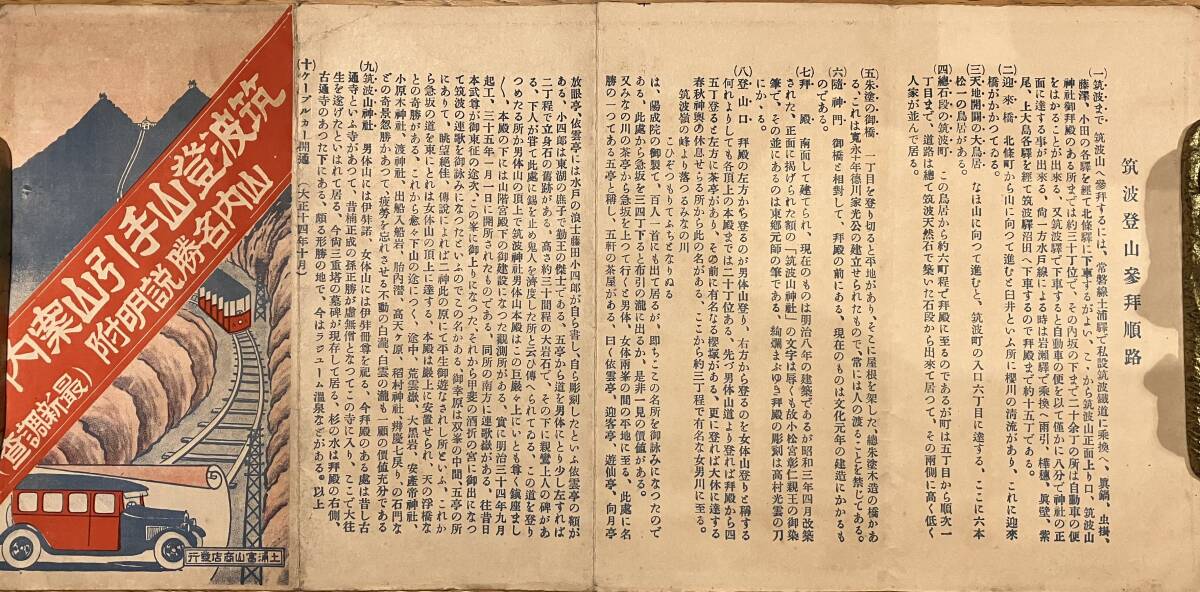 筑波登山參拜順路
(一)筑波まで 筑波山へ參拜するには、常磐線土浦驛で私設筑波鐵道に乘換へ、眞鍋、虫掛、
藤澤、小田の各驛を經て北條驛に下車するがよい、こゝから筑波山正面上り口、筑波山
神社御拜殿のある所までは約三十丁位で、その内坂の下まで二十余丁の所は自動車の便
をはかることが出來る、又筑波驛で下車すると自動車の便を以て僅かに八分で神社の正
面に達する事が出來る、尙一方水戶線による時は岩瀨驛で乘換へ雨引、樺穗、眞壁、紫
尾、上大島各驛を經て筑波驛沼田へ下車するので拜殿まで約十五丁である。
(二)迎來橋 北條町から山に向つて進むと臼井といふ所に櫻川の淸流があり、これに迎來
橋がかかつてゐる。
(三)天地開闢の大鳥居 なほ山に向つて進むと、筑波町の入口六丁目に達する、ここに六本
松一の鳥居がある。
(四)總石段の筑波町 この鳥居から約六町程で拜殿に至るのであるが町は五丁目から順次一
丁目まで、道路は總て筑波天然石で築いた石段から出來て居つて、その兩側に高く低く
人家が並んで居る。
(五)朱塗の御橋 一丁目を登り切ると平地があり、そこに屋根を架した、總朱塗木造の橋かあ
る、これは寬永十年德川家光公の建立せられたもので、常には人の渡ることを禁じてある。
(六)隨神門 御橋と相對して、拜殿の前にあるもの、現在のものは文化元年の建造にかかも
のである。
(七)拜殿 南面して建てられ、現在のものは明治八年の建築であるが昭和三年四月改築
された、正面に揭げられた額の「筑波山神社」の文字は辱くも故小松宮彰仁親王の御染
筆で、その並にあるのは東鄕元帥の筆である、絢爛まぶゆき拜殿の彫刻は高村光雲の刀
にかゝる。
(八)登山口 拜殿の左方から登るのが男体山登り、右方から登るのを女体山登りと稱する
何れよりしても各頂上の本殿までは二十丁位である、先づ男体山道より登れば拜殿から四
五丁登ると左方に茶亭があり、その前に有名なる櫻塚がある、更に登れば大休に達する
春秋神輿の休息せらる所から此の名がある、ここから約三丁程で有名な女男川に至る。
筑波嶺の峰より落つるみなの川
こひぞつもりてふちとなりぬる
は、陽成院の御製で、百人一首にも出て居るが、卽ちここの名所を御詠みになつたので
ある、此處から急坂を四丁下ると布引の瀧に出るが、是非一見の價値がある。
又みなの川の茶亭から急坂を上つて行くと男体、女体兩峯の間の平地に至る、此處に名
勝の一つである五亭と稱し、五軒の茶屋がある、曰く依雲亭、迎客亭、遊仙亭、向月亭
放眼亭、依雲亭には水戶の浪士藤田小四郎が自ら書し、自ら彫刻したといふ依雲亭の額が
ある、小四郎は東湖の庶子で勤王の傑士である。五亭から道を男体にとり少し左すれば
二丁程で立身石の舊跡がある、高さ約三十間程の大岩石で、その下に親鸞上人の碑があ
る、下人が甞て此處に錫を止め鬼人を濟度した所と云ひ傳へられてゐる、この道を登り
つめたる所が男体山の頂上で筑波神社男体山本殿はこの巨巖々上にいとも尊く鎭座まし
〳〵、本殿の下には山階宮殿下の御建設になつた觀測所がある、實に明治三十四年九月
起工、三十五年一月一日に開所されたものである、同所の南方に連歌嶽がある、往昔日
本武尊が御東征の途次、この峯に御上りになつた、それから甲斐の酒折の宮に御出になつ
て筑波の連歌を御詠みになつたといふのでこの名かある、御幸原は双峯の中間、五亭の所
にありて、眺望絕佳、傳說によれば二神此の原にて平生御遊なされし所といふ、これか
ら急坂の道を東にとれば女体山の頂上に達する、本殿は嚴上に安置せられ、天の浮橋な
との奇勝がある、これから愈々下山の途につく、途中、荒雲嶽、大黑岩、安產帝神社、
小原木神社、渡神社、出船入船岩、胎內潛、高天ヶ原、稻村神社、辨慶七戾り、の石門な
どの奇景忽勝かあつて、疲勞を忘れさせる不動の白瀧、白雲の瀧も一顧の價値充分である
(九)筑波山神社 男体山には伊弉諾、女体山には伊弉冊尊を祀る、今拜殿のある處は昔し古
通寺といふ寺があつて、昔楠正成の孫正勝が虛無僧となつてこの寺に入り、ここで大往
生を遂げたといはれて居る、今尙三重塔の墓碑が現存して居る、杉の水は拜殿の右側、
古通寺のあつた下にある、頗る形勝の地で、今はラヂューム溫泉などがある。以上
(十)ケーブルカー開通 (大正十四年十月)
筑波登山手引山案內
山內名勝說明附
(最新調查)
土浦富山商店發行